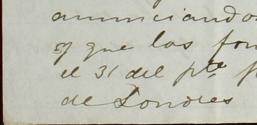 anunciandos
y que las fon
el 31 del pte p
de Londres